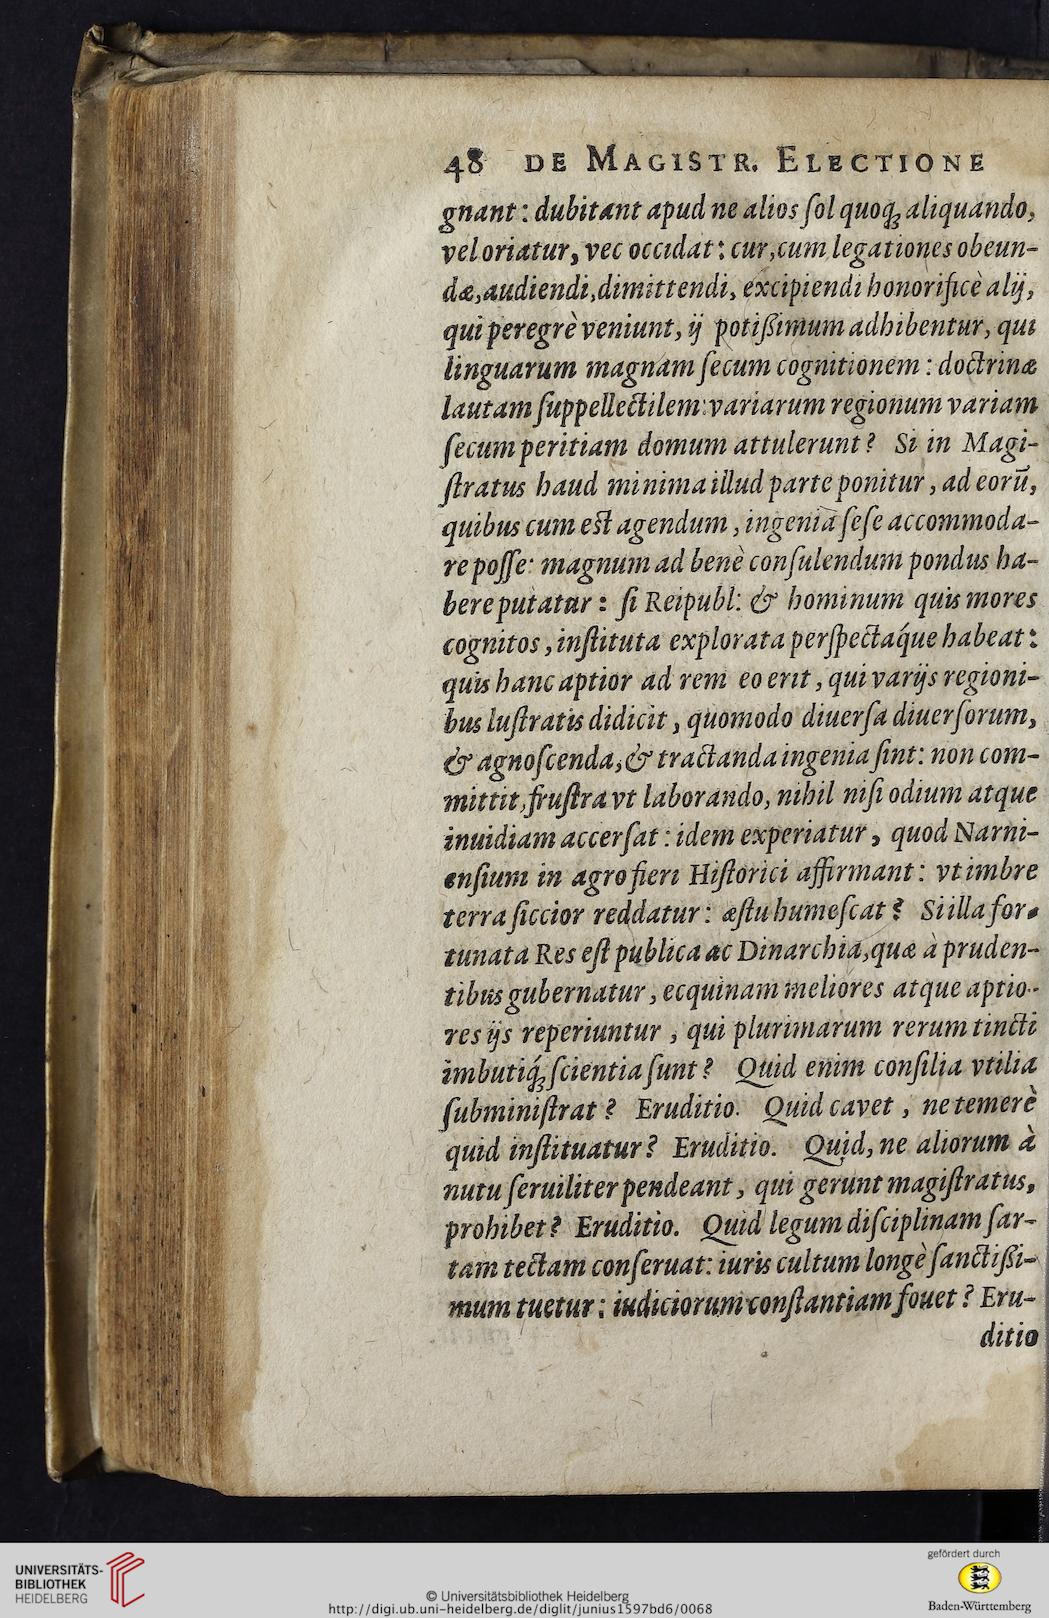 48 DE MAGISTR. ELECTIONE
gnant: dubitant apud ne alios ſol quoq́ꝫ aliquando,
vel oriatur, vec occidat: cur, cum legationes obeun-
dæ, audiendi, dimittendi, excipiendi honorificè alij,
qui peregrè veniunt, ij potißimum adhibentur, qui
linguarum magnam ſecum cognitionem: doctrinæ
lautam ſuppellectilem: variarum regionum variam
ſecum peritiam domum attulerunt? Si in Magi-
ſtratus haud minima illud parte ponitur, ad eorū,
quibus cum eſt agendum, ingenia ſeſe accommoda-
re poſſe: magnum ad benè conſulendum pondus ha-
bere putatur: ſi Reipubl: & hominum quis mores
cognitos, inſtituta explorata perſpectáque habeat:
quis hanc aptior ad rem eo erit, qui varijs regioni-
bus luſtratis didicit, quomodo diuerſa diuerſorum,
& agnoſcenda, & tractanda ingenia ſint: non com-
mittit, fruſtra vt laborando, nihil niſi odium atque
inuidiam accerſat: idem experiatur, quod Narni-
enſium in agro fieri Hiſtorici affirmant: vt imbre
terra ſiccior reddatur: æſtu humeſcat? Si illa for-
tunata Res eſt publica ac Dinarchia, quæ à pruden-
tibus gubernatur, ecquinam meliores atque aptio-
res ijs reperiuntur, qui plurimarum rerum tincti
imbutiq́ꝫ ſcientia ſunt? Quid enim conſilia vtilia
ſubminiſtrat? Eruditio. Quid cavet, ne temerè
quid inſtituatur? Eruditio. Quid, ne aliorum à
nutu ſeruiliter pendeant, qui gerunt magiſtratus,
prohibet? Eruditio. Quid legum diſciplinam ſar-
tam tectam conſeruat: iuris cultum longè ſanctißi-
mum tuetur: iudiciorum conſtantiam fouet? Eru-
ditio
UNIVERSITÄTS-
BIBLIOTHEK
HEIDELBERG
© Universitätsbibliothek Heidelberg
http://digi.ub.uni-heidelberg.de/diglit/junius1597bd6/0068
gefördert durch
Baden-Württemberg